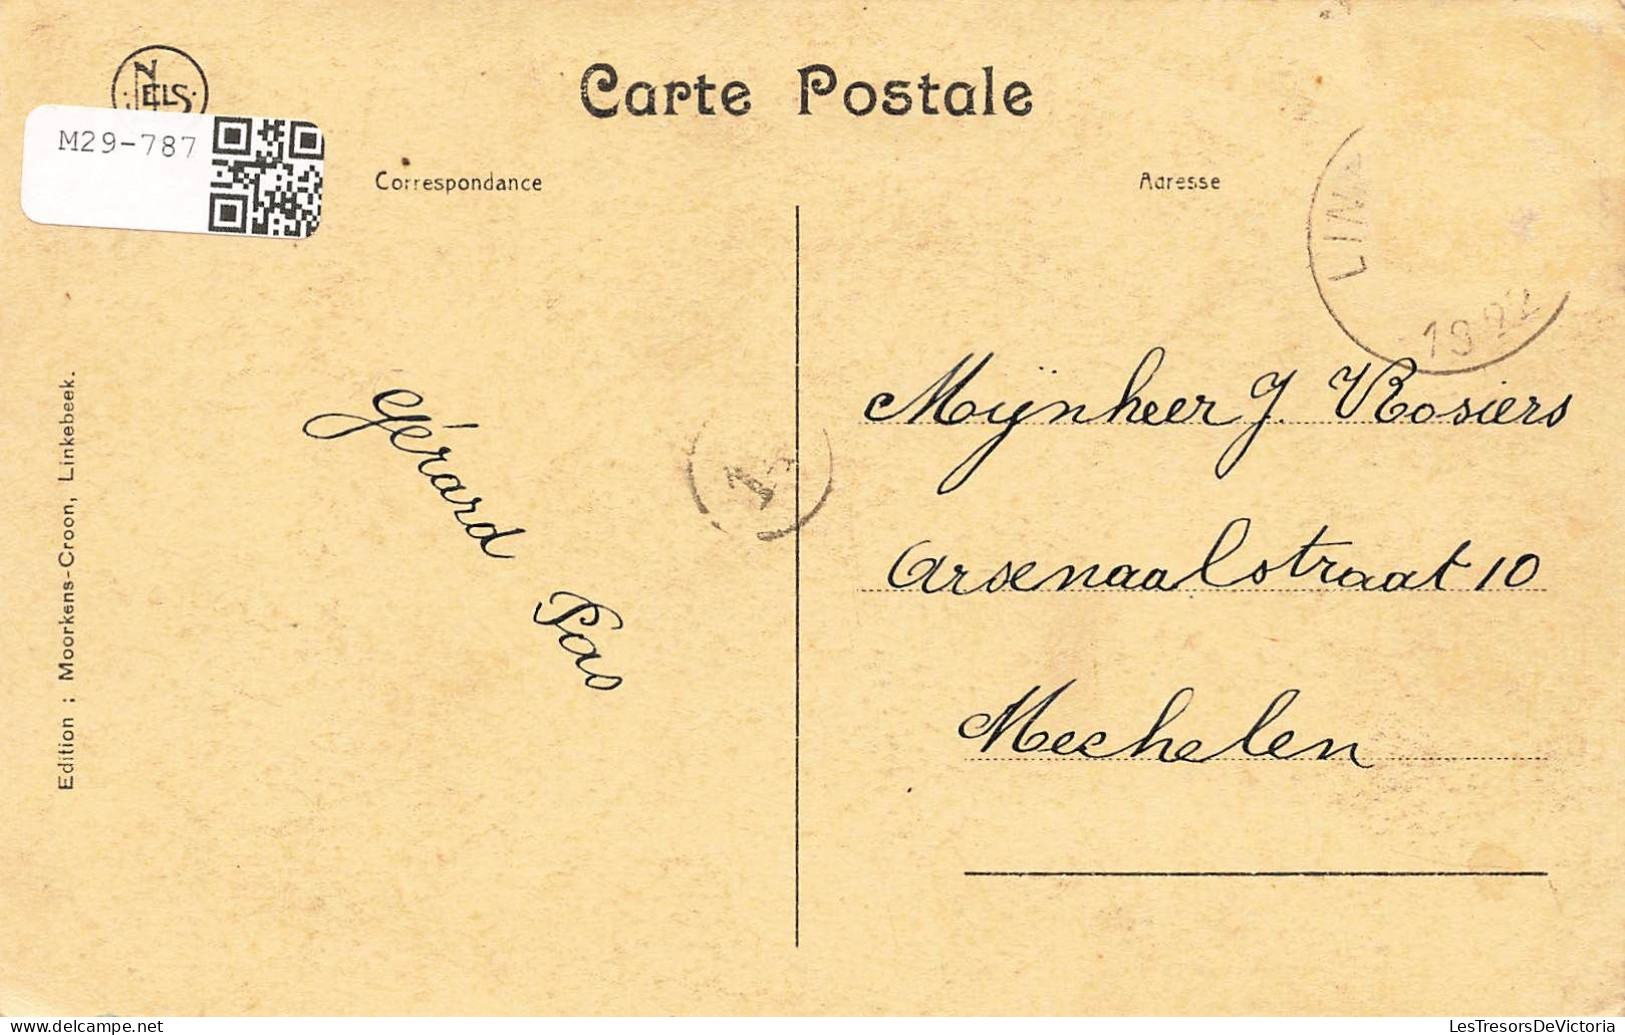 NELS
Carte Postale
M29-787
Correspondance
Adresse
LIN
1922
Edition : Moorkens-Croon, Linkebeek.
Gérard Pas
Mijnheer J. Rosiers
Arsenaalstraat 10
Mechelen
delcampe.net
LesTresorsDeVictoria